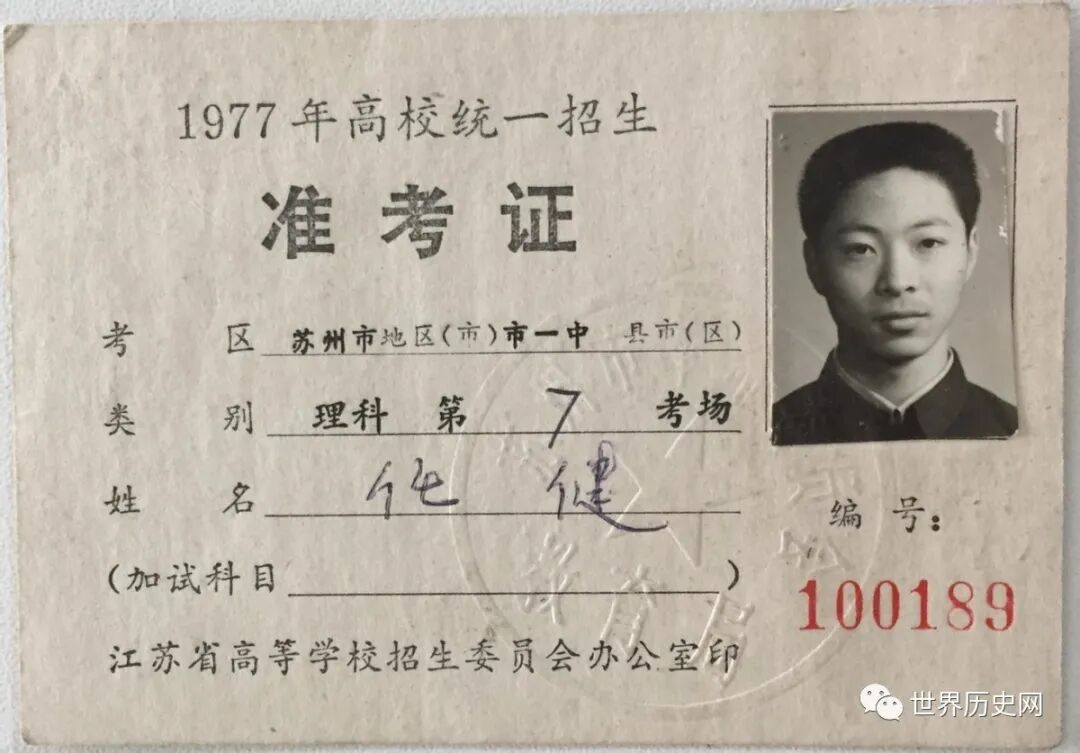 1977年高校统一招生
准考证
考区 苏州市地区(市)市一中 县市(区)
类别 理科 第 7 考场
姓名 健
(加试科目 )
江苏省高等学校招生委员会办公室印
编号:
100189
世界历史网